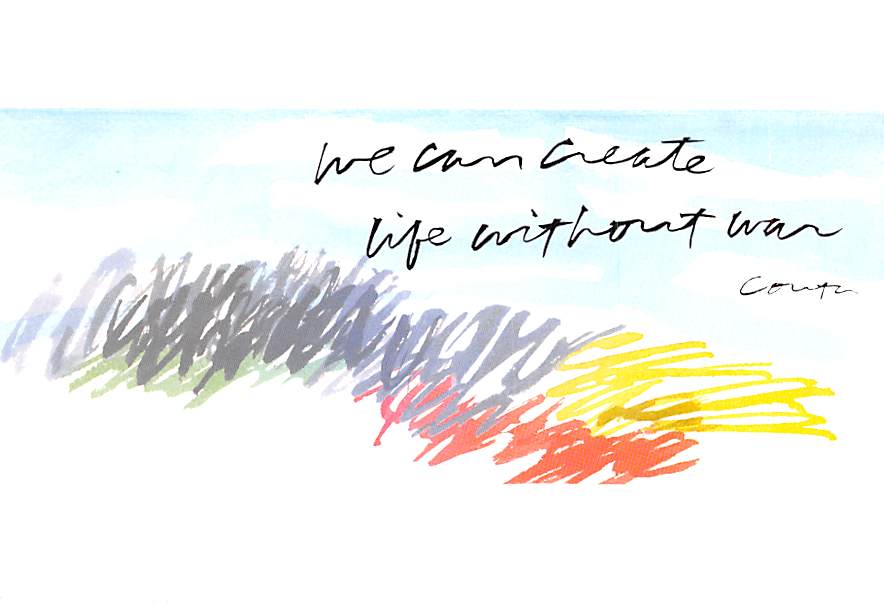 we can create
life without war
Corita